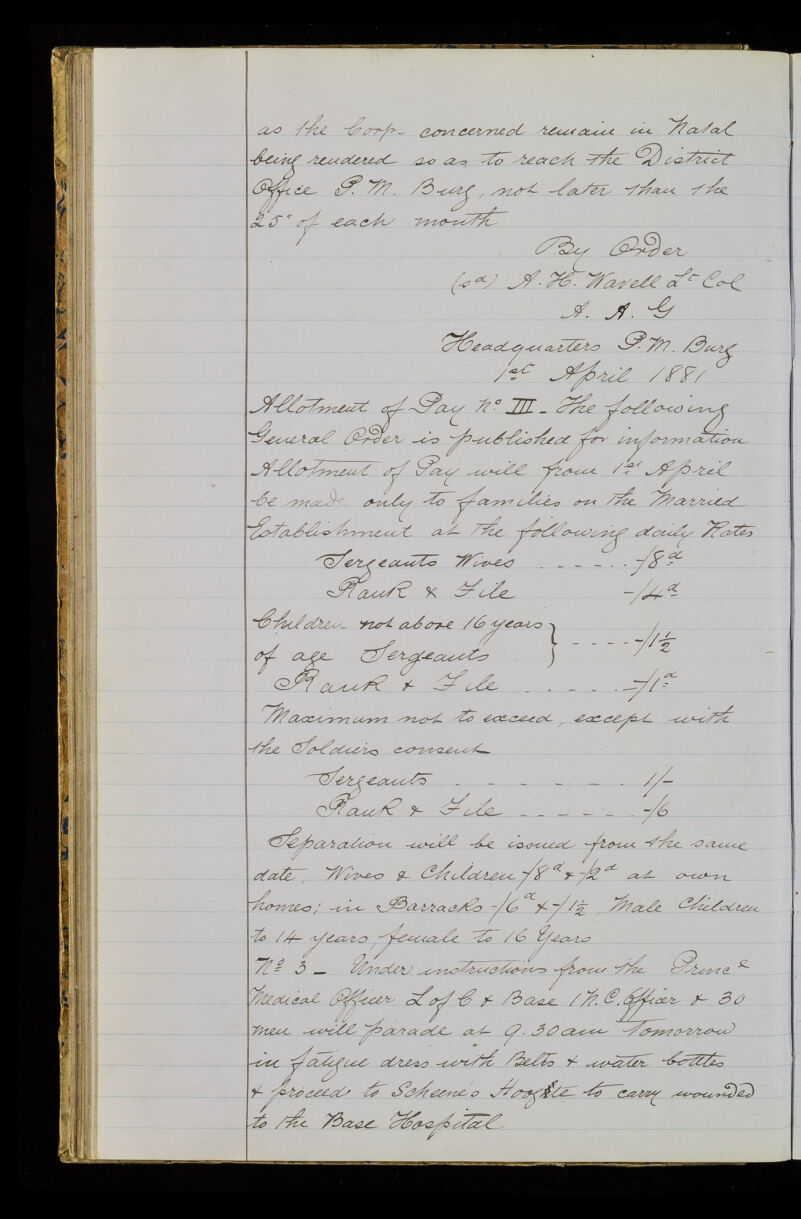 as the Corp- concerned remain in Natal
being rendered so as to reach the District
Office P. M. Burg, not later than the
25" of each month
By Order
(sd) A. H. Wavell Lt Col
A. A. G
Headquarters P. M. Burg
1st April 1881
Allotment of Pay No III - The following
General Order is published for information
Allotment of Pay will from 1st April
be made only to families on the Married
Establishment at the following daily Rates
Sergeants Wives - - - - - - -/8d
Rank & File -/4d
Children not above 16 years
of age Sergeants } - - - - -/1½
Rank & File - - - - - -/1d
Maximum not to exceed, except with
the Soldiers consent
Sergeants - - - - - - - 1/-
Rank & File - - - - - - -/6
Separation will be issued from the same
date, Wives & Children -/8d & -/2d at own
homes; in Barracks -/6d & -/1½, Male Children
to 14 years, female to 16 Years
No 3 - Under instructions from the Prince
Medical Officer L of C & Base 1 N.C. Officer & 30
men will parade at 9.30am tomorrow
in fatigue dress with Belts & water bottles
& proceed to Scheene's to carry wounded
to the Base Hospital